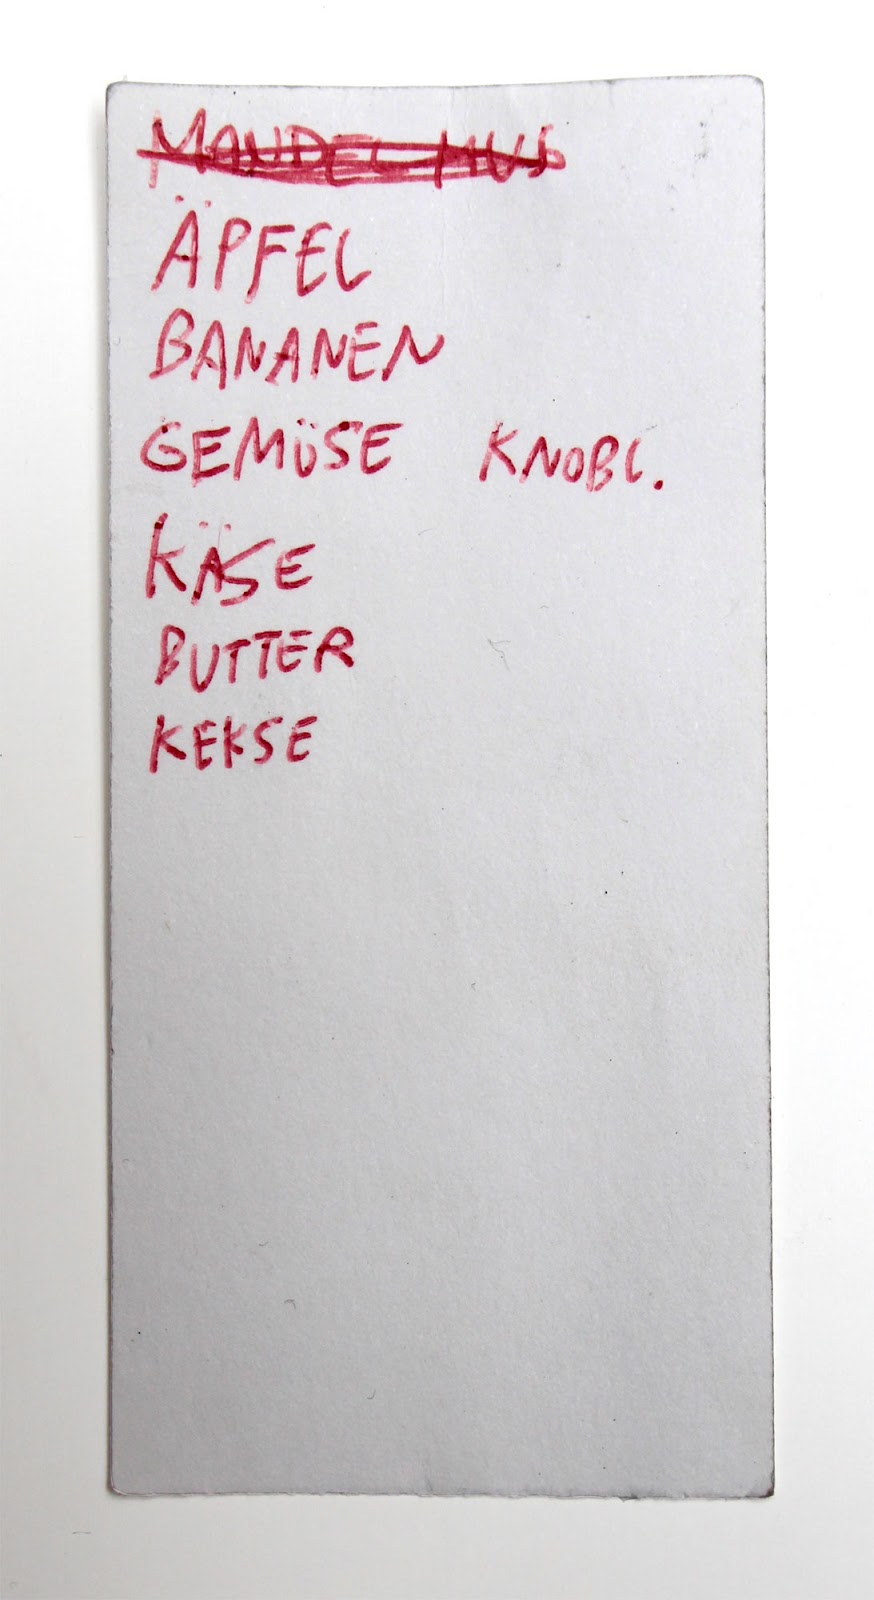 MANDELMUS
ÄPFEL
BANANEN
GEMÜSE KNOBL.
KÄSE
BUTTER
KEKSE